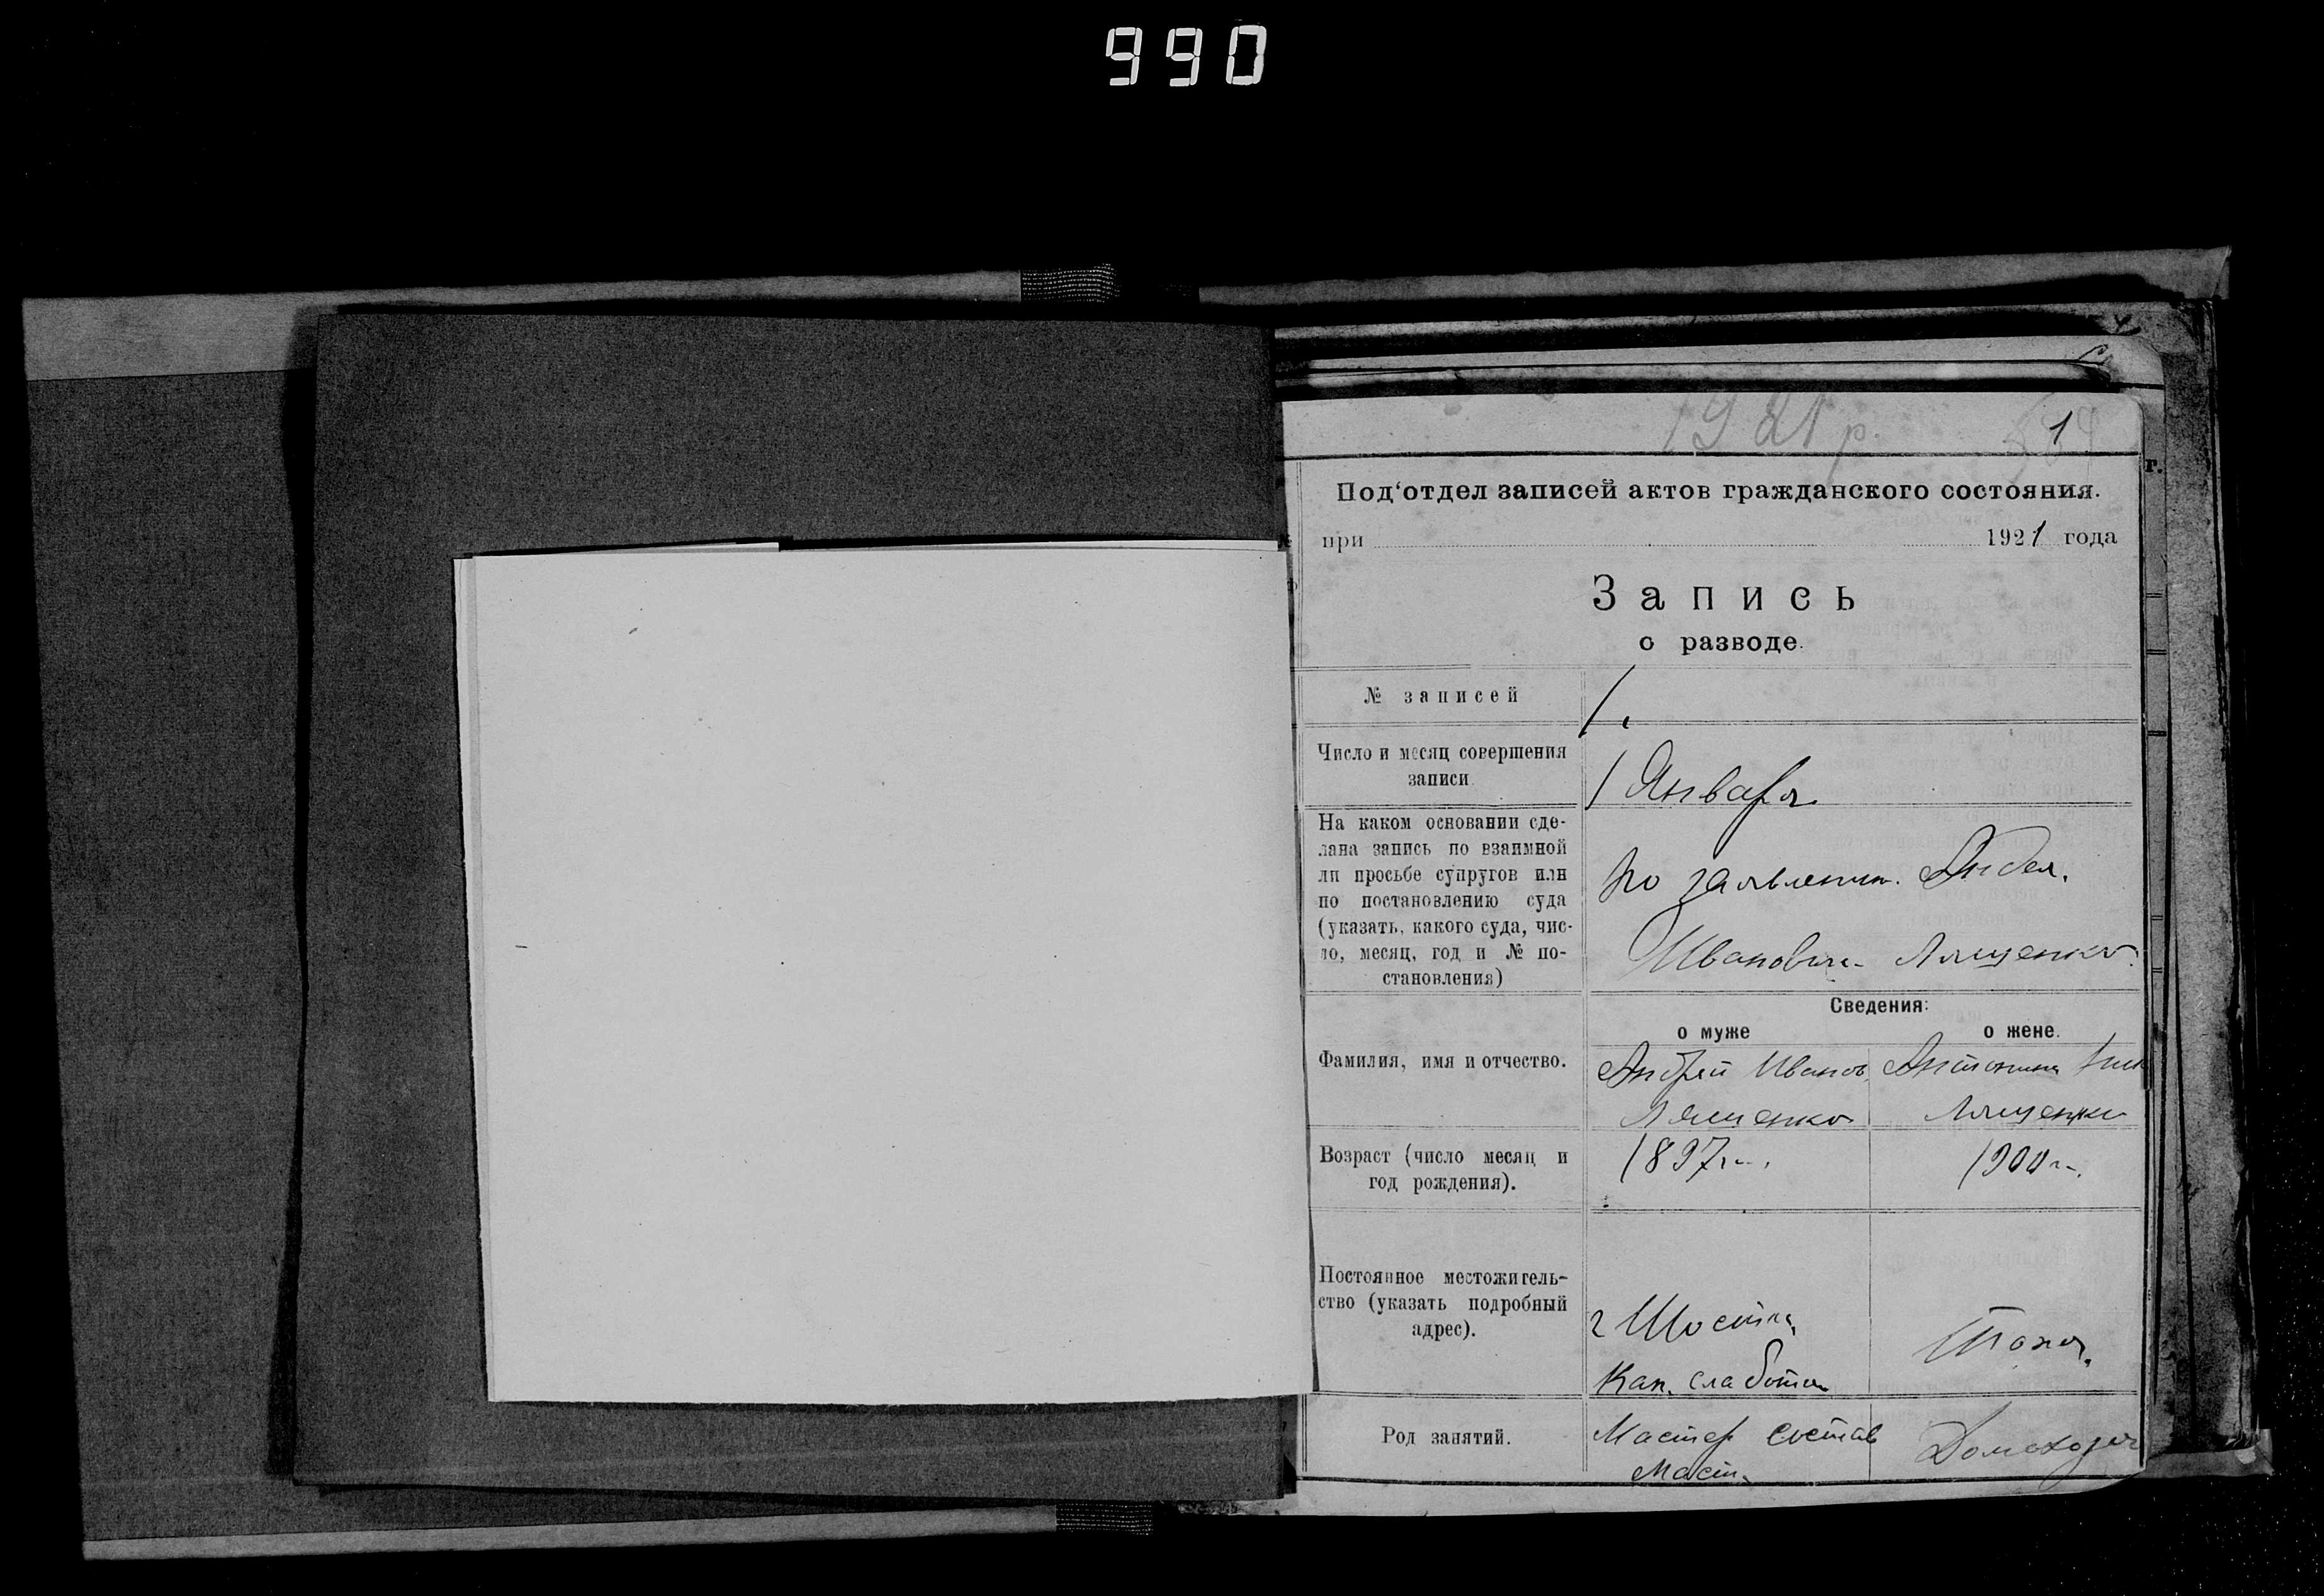 990
1921 р.
1
Под'отдел записей актов гражданского состояния.
при 1921 года
Запись
о разводе.
№ записей
1.
Число и месяц совершения
записи
1 Января
На каком основании сде-
лана запись по взаимной
ли просьбе супругов или
по постановлению суда
(указать, какого суда, чис-
ло, месяц, год и № по-
становления)
по заявлению
Ивановича Лященко.
Сведения:
о муже
о жене.
Фамилия, имя и отчество.
Андрей Иванов.
Лященко
Антонина
Лященко
Возраст (число месяц и
год рождения).
1897 г.
1900 г.
Постоянное местожитель-
ство (указать подробный
адрес).
г Шостка
Кап. слабота
Тоже.
Род занятий.
Мастер состав
Маст.
Домохозяй
г.